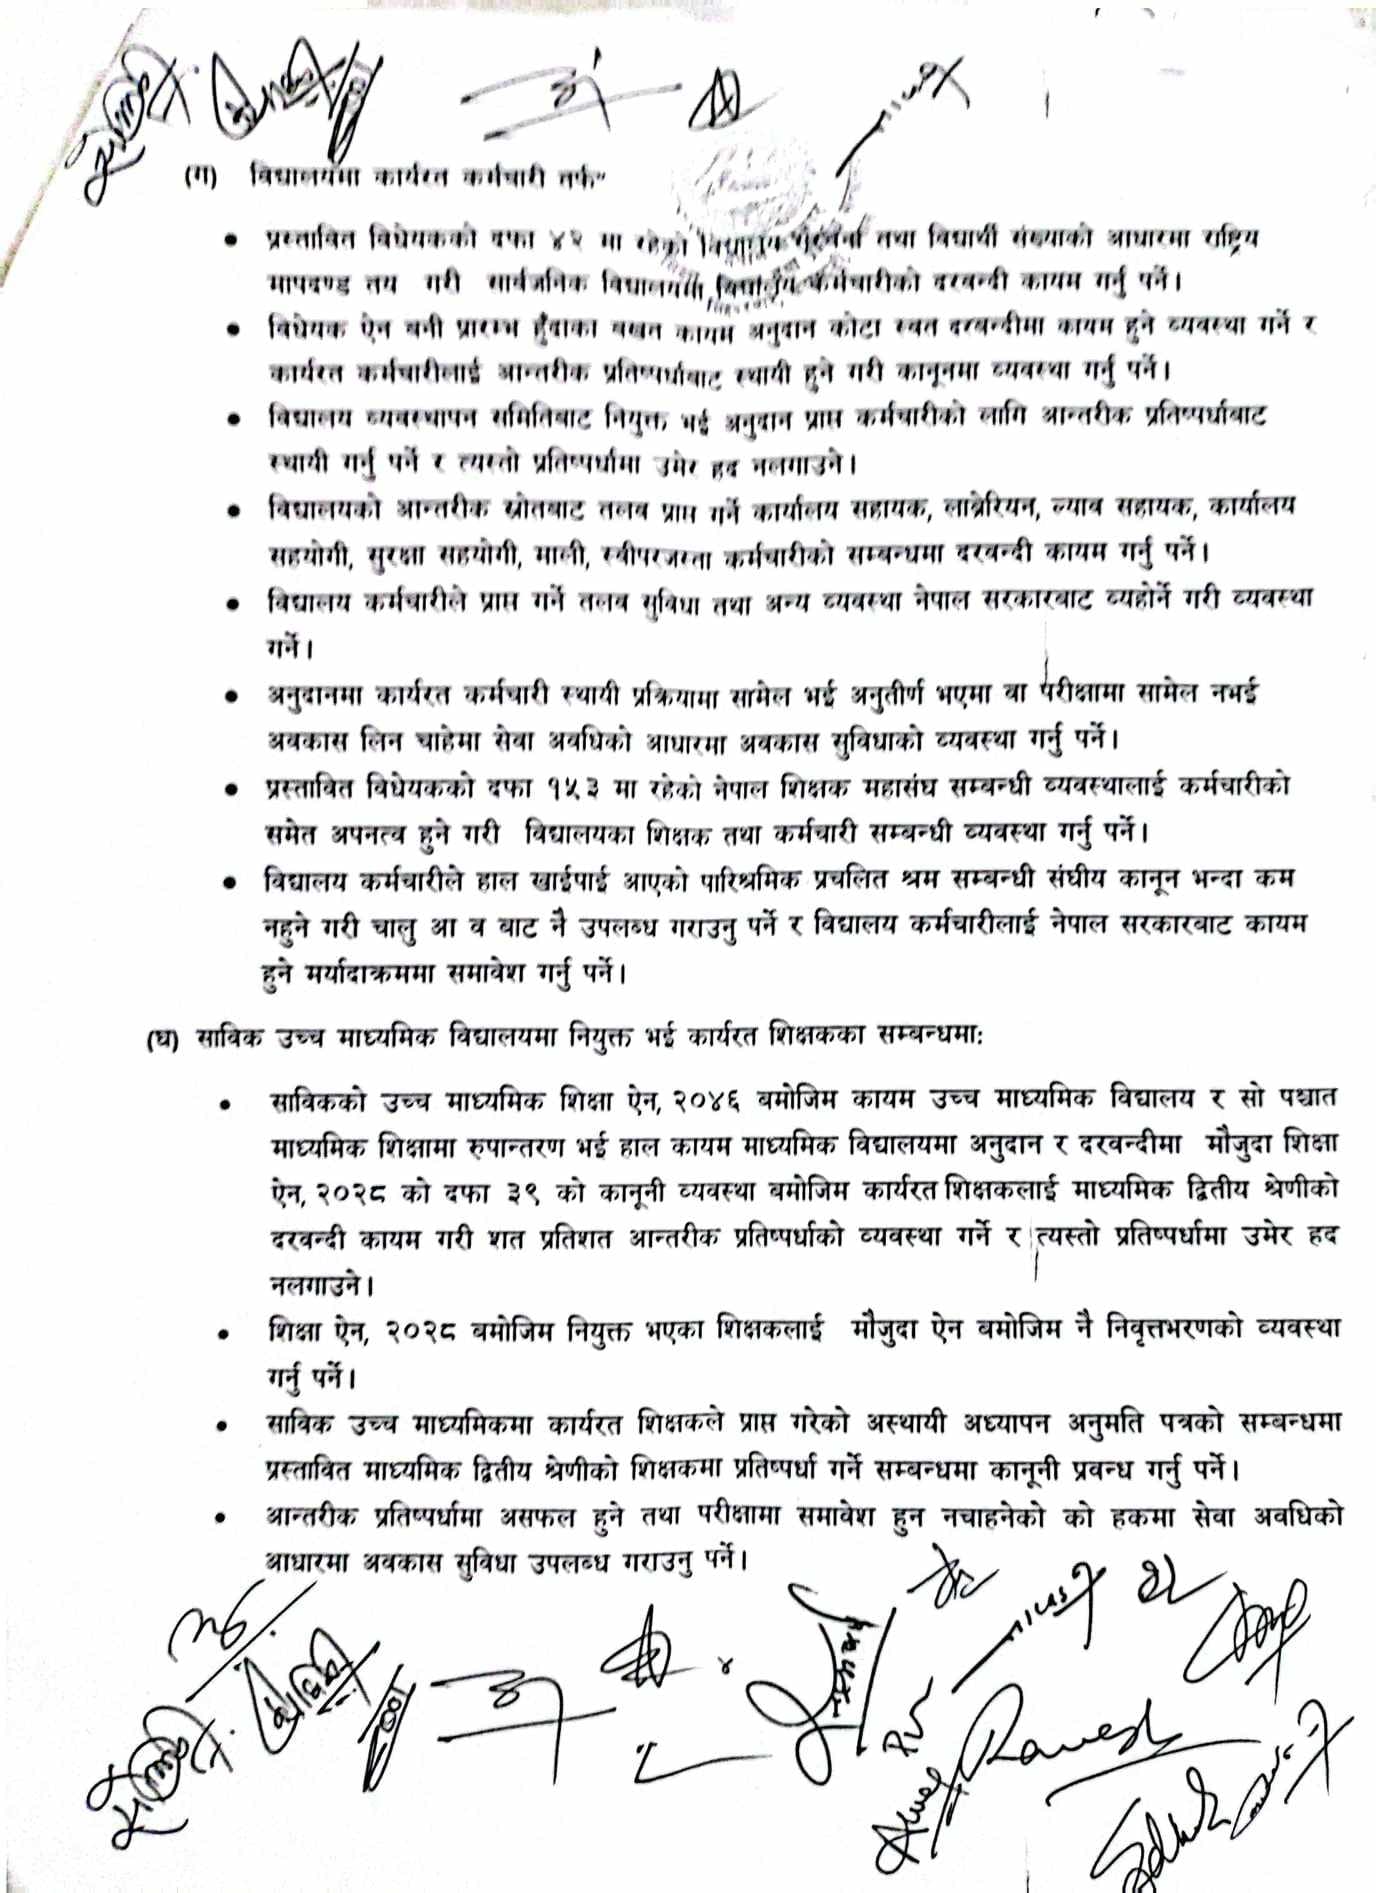 (ग) विद्यालयमा कार्यरत कर्मचारी तर्फ"
• प्रस्तावित विधेयकको दफा ४२ मा रहेको विद्यालय संरचना तथा विद्यार्थी संख्याको आधारमा राष्ट्रिय
मापदण्ड तय गरी सार्वजनिक विद्यालयमा विद्यालय कर्मचारीको दरबन्दी कायम गर्नु पर्ने।
• विधेयक ऐन बनी प्रारम्भ हुँदाका बखत कायम अनुदान कोटा स्वत दरबन्दीमा कायम हुने व्यवस्था गर्ने र
कार्यरत कर्मचारीलाई आन्तरीक प्रतिष्पर्धाबाट स्थायी हुने गरी कानूनमा व्यवस्था गर्नु पर्ने।
• विद्यालय व्यवस्थापन समितिबाट नियुक्त भई अनुदान प्राप्त कर्मचारीको लागि आन्तरीक प्रतिष्पर्धाबाट
स्थायी गर्नु पर्ने र त्यस्तो प्रतिष्पर्धामा उमेर हद नलगाउने।
• विद्यालयको आन्तरीक स्रोतबाट तलब प्राप्त गर्ने कार्यालय सहायक, लाब्रेरियन, ल्याब सहायक, कार्यालय
सहयोगी, सुरक्षा सहयोगी, माली, स्वीपरजस्ता कर्मचारीको सम्बन्धमा दरबन्दी कायम गर्नु पर्ने।
• विद्यालय कर्मचारीले प्राप्त गर्ने तलब सुविधा तथा अन्य व्यवस्था नेपाल सरकारबाट व्यहोर्ने गरी व्यवस्था
गर्ने।
• अनुदानमा कार्यरत कर्मचारी स्थायी प्रक्रियामा सामेल भई अनुतीर्ण भएमा वा परीक्षामा सामेल नभई
अवकास लिन चाहेमा सेवा अवधिको आधारमा अवकास सुविधाको व्यवस्था गर्नु पर्ने।
• प्रस्तावित विधेयकको दफा १५३ मा रहेको नेपाल शिक्षक महासंघ सम्बन्धी व्यवस्थालाई कर्मचारीको
समेत अपनत्व हुने गरी विद्यालयका शिक्षक तथा कर्मचारी सम्बन्धी व्यवस्था गर्नु पर्ने।
• विद्यालय कर्मचारीले हाल खाईपाई आएको पारिश्रमिक प्रचलित श्रम सम्बन्धी संघीय कानून भन्दा कम
नहुने गरी चालु आ व बाट नै उपलब्ध गराउनु पर्ने र विद्यालय कर्मचारीलाई नेपाल सरकारबाट कायम
हुने मर्यादाक्रममा समावेश गर्नु पर्ने।
(घ) साविक उच्च माध्यमिक विद्यालयमा नियुक्त भई कार्यरत शिक्षकका सम्बन्धमा:
• साविकको उच्च माध्यमिक शिक्षा ऐन, २०४६ बमोजिम कायम उच्च माध्यमिक विद्यालय र सो पश्चात
माध्यमिक शिक्षामा रुपान्तरण भई हाल कायम माध्यमिक विद्यालयमा अनुदान र दरबन्दीमा मौजुदा शिक्षा
ऐन, २०२८ को दफा ३९ को कानूनी व्यवस्था बमोजिम कार्यरत शिक्षकलाई माध्यमिक द्वितीय श्रेणीको
दरबन्दी कायम गरी शत प्रतिशत आन्तरीक प्रतिष्पर्धाको व्यवस्था गर्ने र त्यस्तो प्रतिष्पर्धामा उमेर हद
नलगाउने।
• शिक्षा ऐन, २०२८ बमोजिम नियुक्त भएका शिक्षकलाई मौजुदा ऐन बमोजिम नै निवृत्तभरणको व्यवस्था
गर्नु पर्ने।
• साविक उच्च माध्यमिकमा कार्यरत शिक्षकले प्राप्त गरेको अस्थायी अध्यापन अनुमति पत्रको सम्बन्धमा
प्रस्तावित माध्यमिक द्वितीय श्रेणीको शिक्षकमा प्रतिष्पर्धा गर्ने सम्बन्धमा कानूनी प्रवन्ध गर्नु पर्ने।
• आन्तरीक प्रतिष्पर्धामा असफल हुने तथा परीक्षामा समावेश हुन नचाहनेको को हकमा सेवा अवधिको
आधारमा अवकास सुविधा उपलब्ध गराउनु पर्ने।